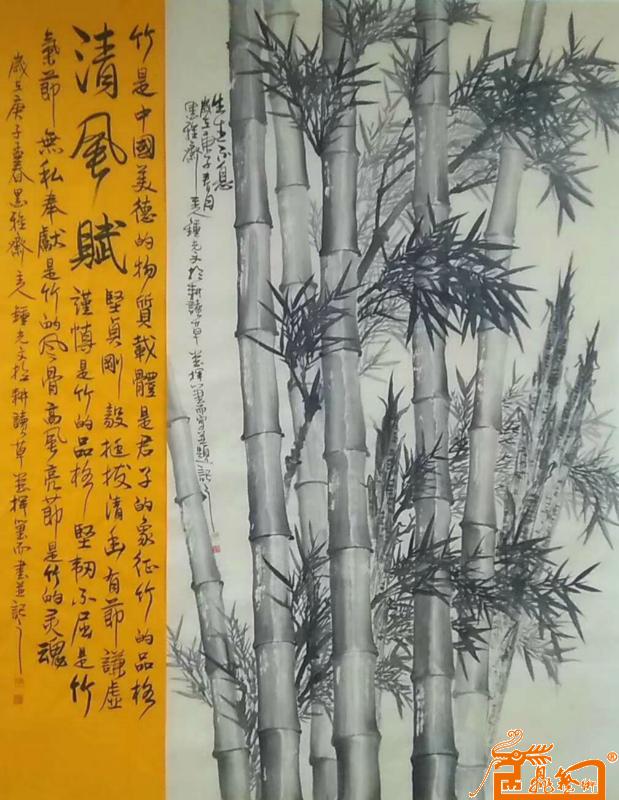 竹是中國美德的物質載體是君子的象征竹的品格
清風賦
堅貞剛毅挺拔清幽有節謙虛
謹慎是竹的品格堅韌不屈是竹
氣節無私奉獻是竹的风骨高風亮節是竹的灵魂
歲在庚子春墨雅齋主人鍾光文於耕讀草堂揮筆而書並記
生生不息
歲在庚子春月
墨雅齋主人鍾光文於耕讀草堂揮筆而寫並題記